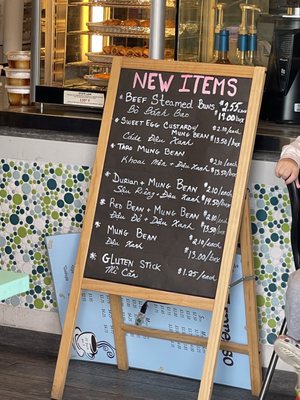 NEW ITEMS
* Beef Steamed Buns $2.55/each
Bò Sách Bao $19.00/box
* Sweet Egg Custard w/ Mung Bean $2.10/each
Cadé Đậu Xanh $13.50/box
* Taro Mung Bean $2.10/each
Khoai Môn + Đậu Xanh $13.50/box
* Durian + Mung Bean $2.10/each
Sầu Riêng + Đậu Xanh $14.50/box
* Red Bean + Mung Bean $2.10/each
Đậu Đỏ + Đậu Xanh $13.50/box
* Mung Bean $2.10/each
Đậu Xanh $13.00/box
* Gluten Stick
Mì Căn $1.25/each